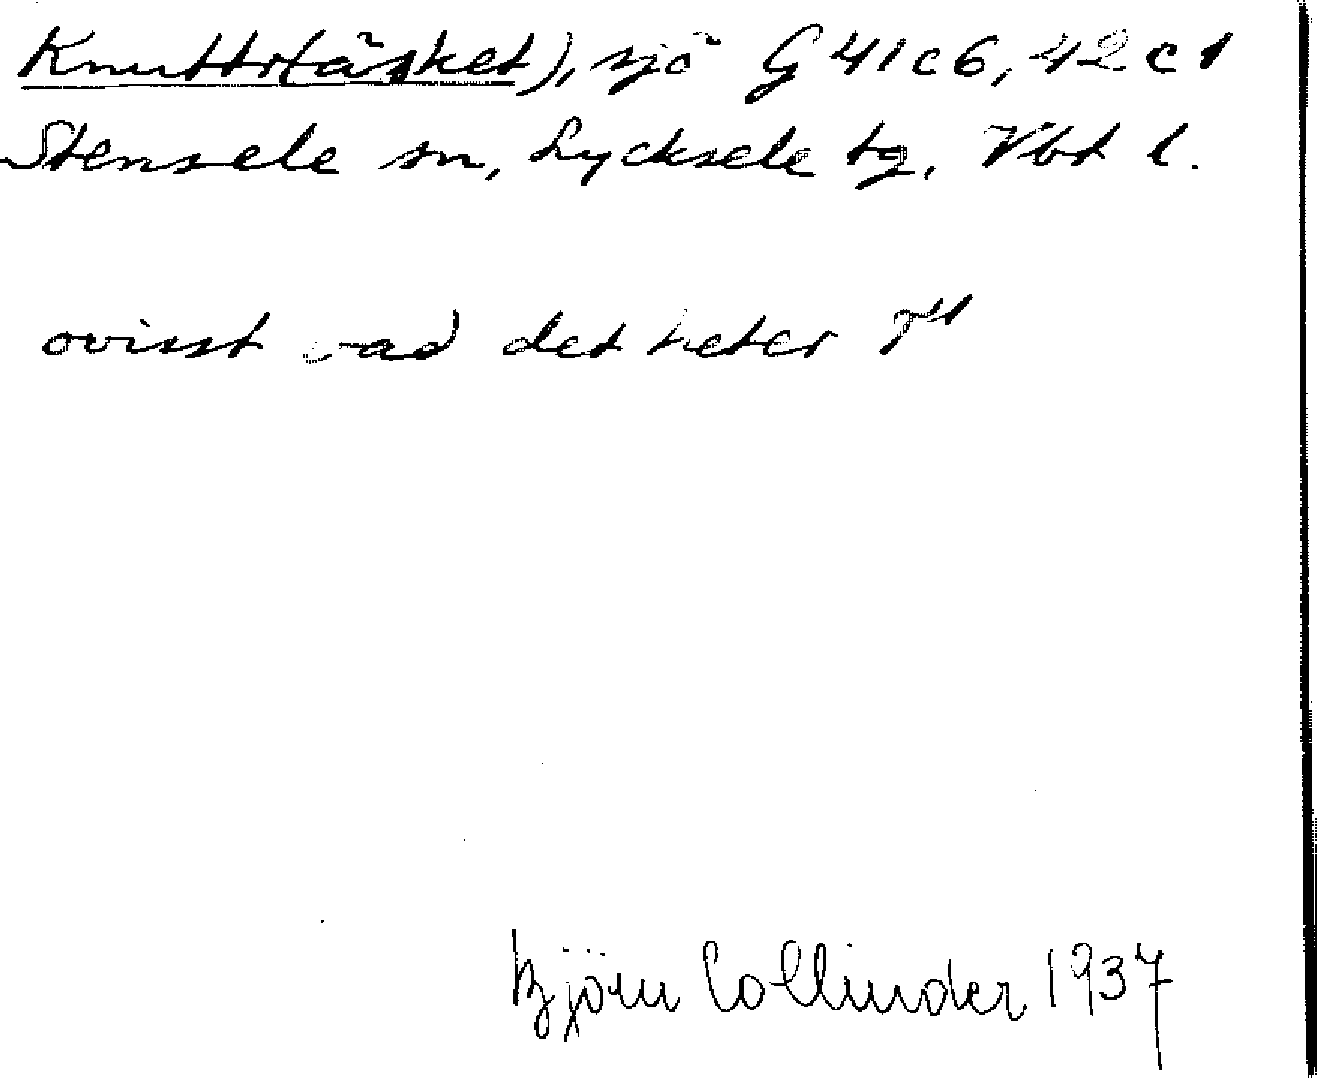 Knuttr(täsket), sjö G 41 c 6, 42 c 1
Stensele sn, Lycksele tg, Vbt l.
ovisst vad det heter
Björn Collinder 1937